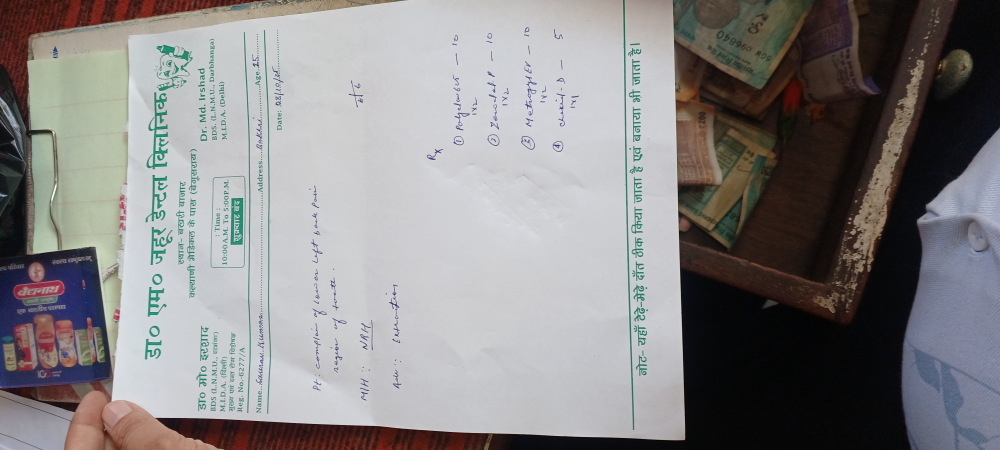 डा० एम० जहूर डेन्टल क्लिनिक
स्थान- बखरी बाजार
कल्याणी मेडिकल के पास (बेगूसराय)
डा० मो० इरशाद
BDS (L.N.M.U., दरभंगा)
M.I.D.A. (दिल्ली)
मुख एवं दन्त रोग विशेषज्ञ
Reg: No.-6277/A
: Time :
10:00A.M. To 5:00P.M.
शुक्रवार बंद
Dr. Md. Irshad
BDS (L.N.M.U., Darbhanga)
M.I.D.A. (Delhi)
Name Kumar Address Bakhri Age 25
Date:
Pt: complain of lower left back pain
region of tooth.
M/H: NRH
Adv: Extraction
Rx
① — 10
1x2
② Zerodol P — 10
1x2
③ — 10
1x2
④ — 5
1x1
नोट- यहाँ टेढ़े-मेढ़े दाँत ठीक किया जाता है एवं बनाया भी जाता है।
बैद्यनाथ